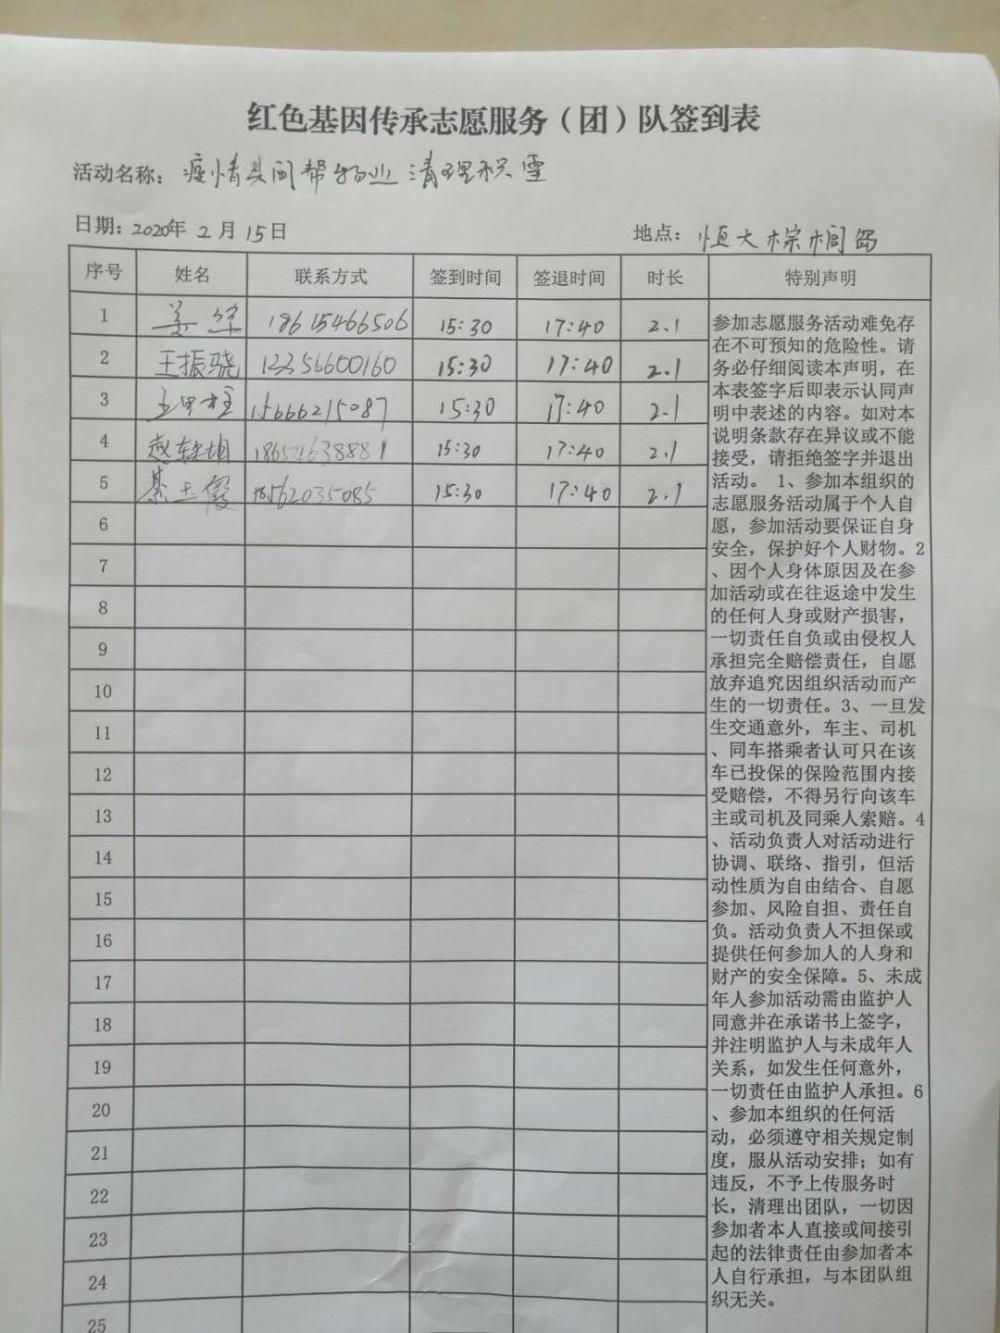 红色基因传承志愿服务（团）队签到表
活动名称：疫情其间帮物业清理积雪
日期：2020年2月15日
地点：恒大棕榈岛
序号 姓名 联系方式 签到时间 签退时间 时长 特别声明
1 18615466506 15:30 17:40 2.1
2 王振骁 15:30 17:40 2.1
3 15666215087 15:30 17:40 2.1
4 18654638881 15:30 17:40 2.1
5 18562035085 15:30 17:40 2.1
6
7
8
9
10
11
12
13
14
15
16
17
18
19
20
21
22
23
24
25
参加志愿服务活动难免存
在不可预知的危险性。请
务必仔细阅读本声明，在
本表签字后即表示认同声
明中表述的内容。如对本
说明条款存在异议或不能
接受，请拒绝签字并退出
活动。 1、参加本组织的
志愿服务活动属于个人自
愿，参加活动要保证自身
安全，保护好个人财物。2
、因个人身体原因及在参
加活动或在往返途中发生
的任何人身或财产损害，
一切责任自负或由侵权人
承担完全赔偿责任，自愿
放弃追究因组织活动而产
生的一切责任。3、一旦发
生交通意外，车主、司机
、同车搭乘者认可只在该
车已投保的保险范围内接
受赔偿，不得另行向该车
主或司机及同乘人索赔。4
、活动负责人对活动进行
协调、联络、指引，但活
动性质为自由结合、自愿
参加、风险自担、责任自
负。活动负责人不担保或
提供任何参加人的人身和
财产的安全保障。5、未成
年人参加活动需由监护人
同意并在承诺书上签字，
并注明监护人与未成年人
关系，如发生任何意外，
一切责任由监护人承担。6
、参加本组织的任何活
动，必须遵守相关规定制
度，服从活动安排；如有
违反，不予上传服务时
长，清理出团队，一切因
参加者本人直接或间接引
起的法律责任由参加者本
人自行承担，与本团队组
织无关。